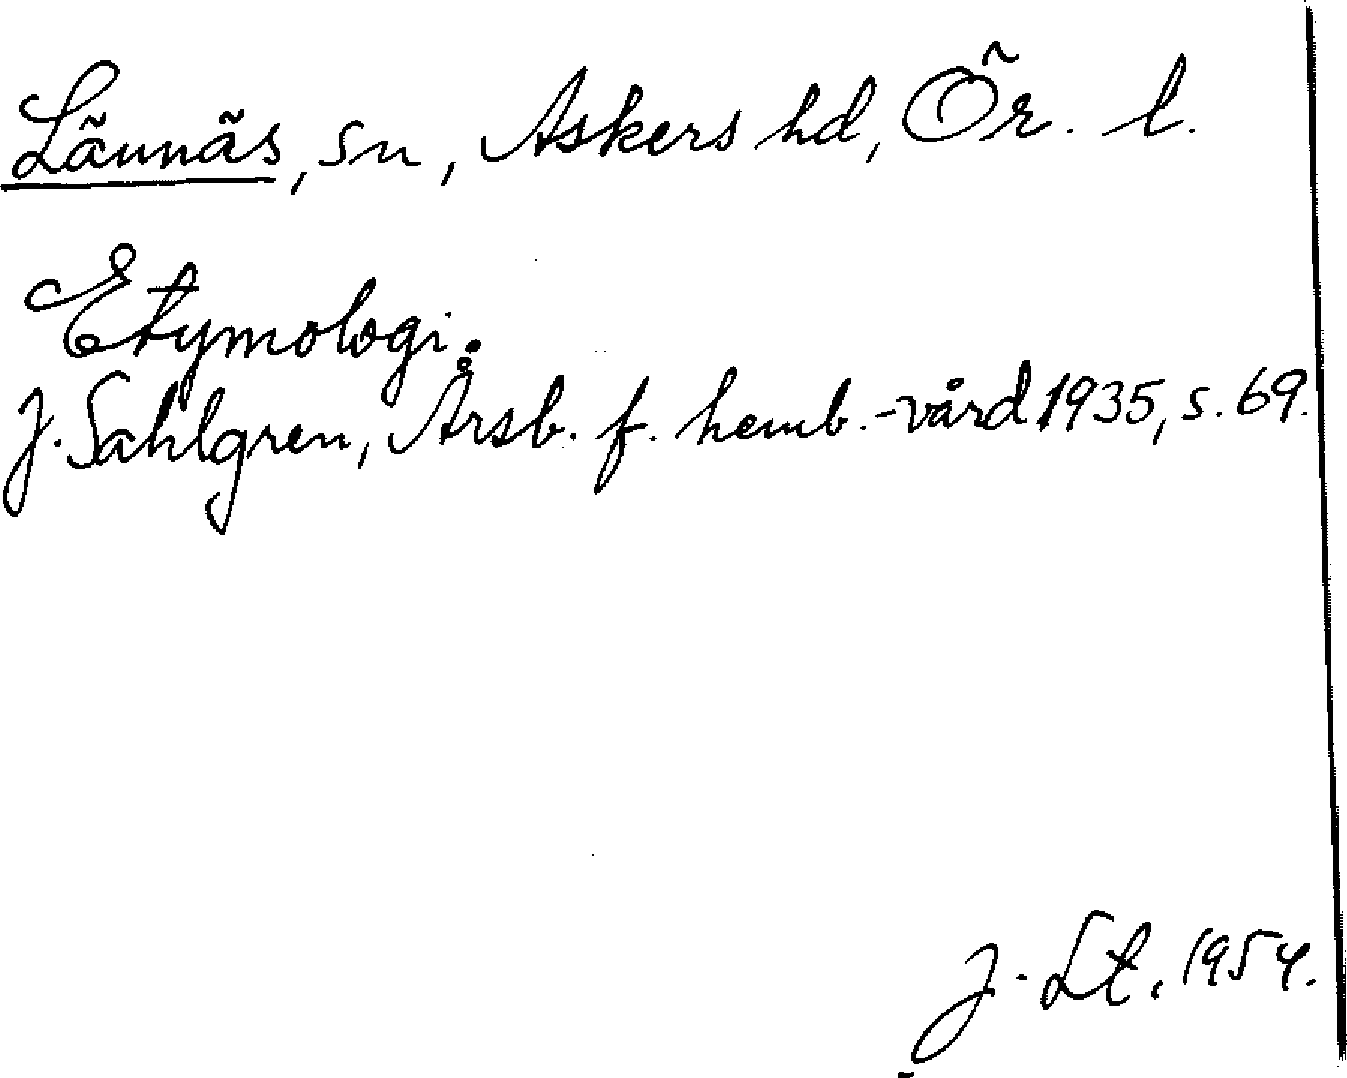 Lännäs, sn, Askers hd, Ör. l.
Etymologi.
J. Sahlgren, Årsb. f. hemb.-vård 1935, s. 69.
J. Lt. 1954.